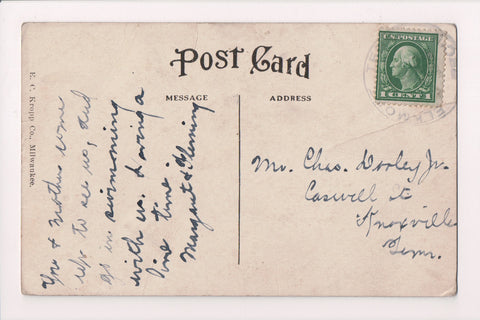 Post Card
MESSAGE
ADDRESS
E. C. Kropp Co., Milwaukee.
U.S. POSTAGE
1 CENT 1
ELKMO
You & mother come
up to see us, and
go in swimming
with us. Having a
fine time.
Margaret & Fleming
Mr. Chas. Dooley Jr.
Caswell St
Knoxville
Tenn.